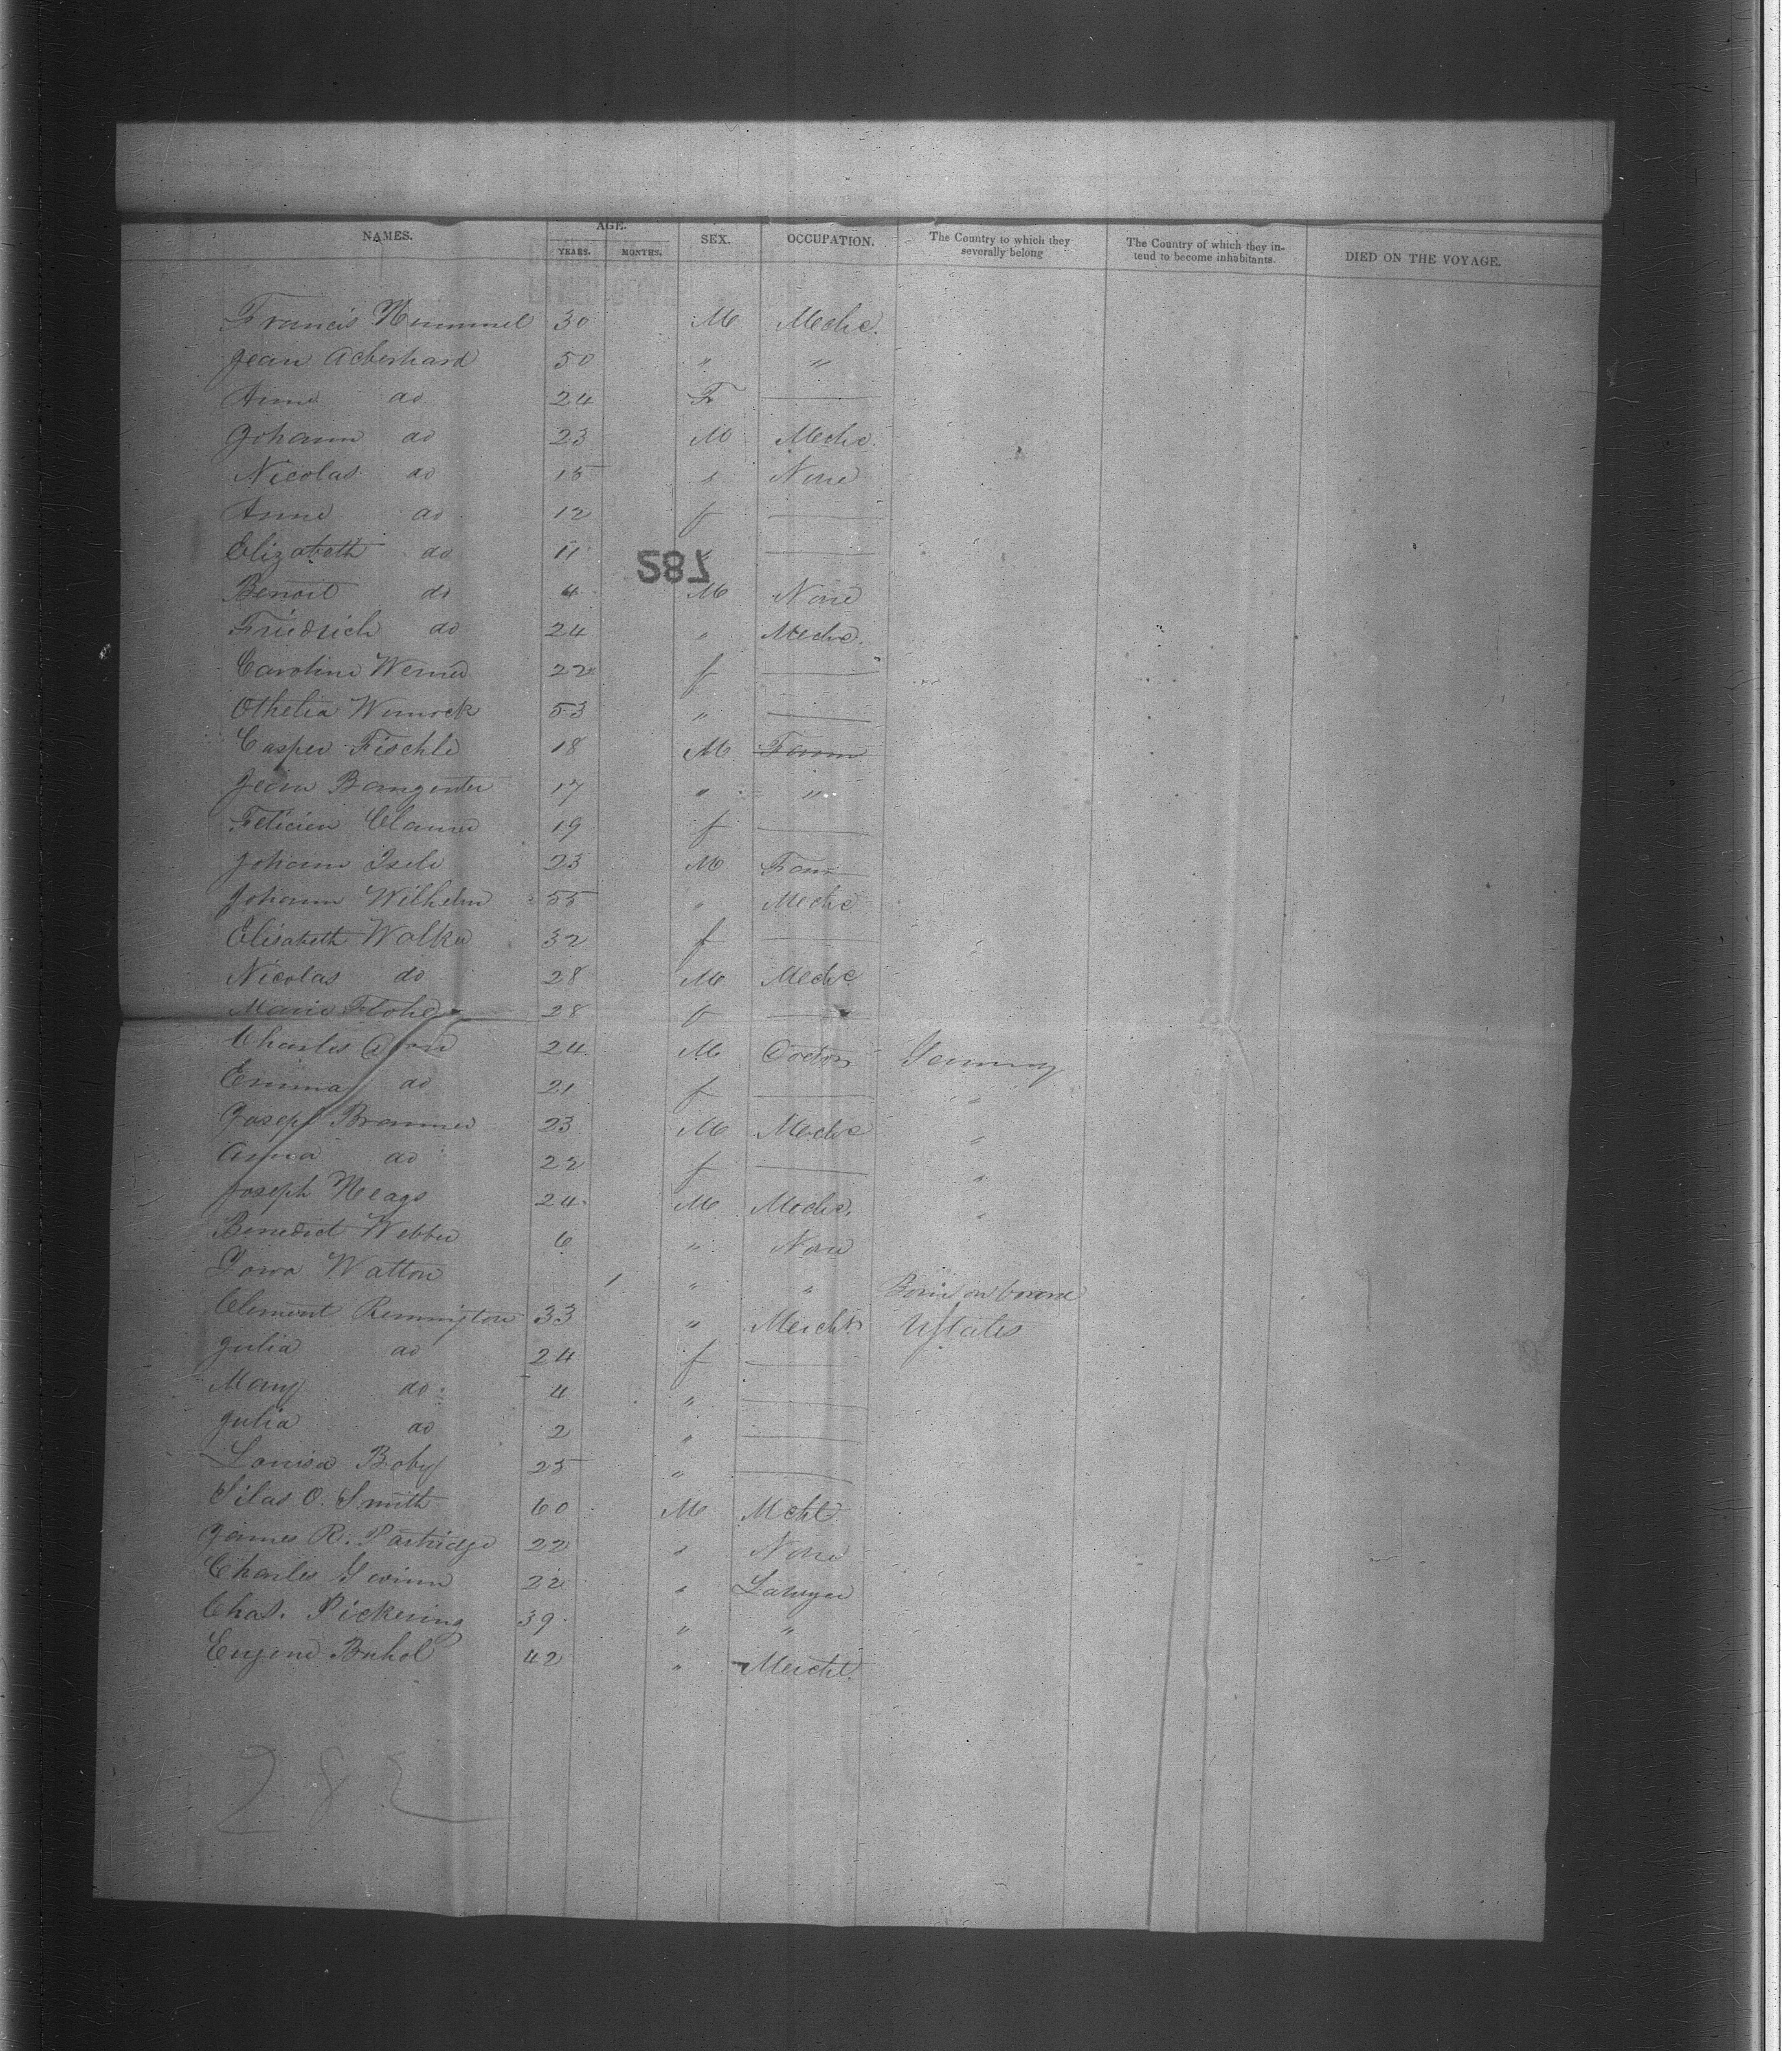 NAMES. AGE. YEARS. MONTHS. SEX. OCCUPATION. The Country to which they severally belong The Country of which they intend to become inhabitants. DIED ON THE VOYAGE.
Francis Hummel 30 M Mechc.
Jean Acberhard 50 " "
Anna do 24 F
Johann do 23 M Mechc.
Nicolas do 15 " None
Anna do 12 f
Elizabeth do 11 "
287
Benoit do 4 M None
Friedrich do 24 " Mechc.
Caroline Werner 22 f
Othelia 53 "
Casper Fischle 18 M Farm
Jean 17 " "
Felicien 19 f
Johann Iseli 23 M Farm
Johann Wilhelm 55 " Mechc
Elisabeth Walker 32 f
Nicolas do 28 M Mechc
Marie 28 f
Charles 24 M Doctor Germny
Emma do 21 f "
Joseph Brammer 23 M Mechc "
Anna do 22 f "
Joseph 24 M Mechc. "
Benedict Webber 6 " None
Watton 1 " " Born on board
Clement Remmington 33 " Mercht UStates
Julia do 24 f
Mary do 4 "
Julia do 2 "
Louisa Boby 25 "
Silas O. Smith 60 M Mcht
James R. Partridge 22 " None
Charles Gwinn 22 " Lawyer
Chas. Pickering 39 " "
Eugene 42 " Mercht.
282